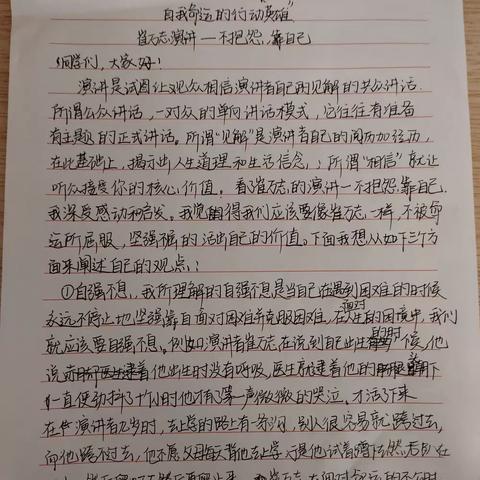 自我命运的行动英雄"
崔万志演讲—不抱怨,靠自己
同学们,大家好!
演讲是试图让观众相信演讲者自己的见解的公众讲话.
所谓公众讲话,一对众的单向讲话模式,它往往有准备
有主题的正式讲话。所谓"见解"是演讲者自己的阅历加经历,
在此基础上,揭示出人生道理和生活信念,;所谓"相信"就让
听众接受你的核心价值。看崔万志的演讲—不抱怨靠自己.
我深受感动和启发。我觉得我们应该要像崔万志一样,不被命
运所屈服,坚强的活出自己的价值。下面我想从如下三个方
面来阐述自己的观点,:
①自强不息,.我所理解的自强不息是当自己在遇到困难的时候
永远不停止地坚强靠自面对困难并克服困难,在人生的困境中,我们
面对
就应该要自强不息。例如演讲者崔万志在说到自己出生的时候,他
说 他出生时没有呼吸,医生就逮着他的 脚
一直使劲抖,十几小时他才有了第一声微微的哭泣.才活了下来
在 演讲者九岁时,去上学的路上有一条沟,别人很容易就跳过去,
而他跳不过去,他不愿父母每天背他去上学于是他试着蹭下去然后趴在